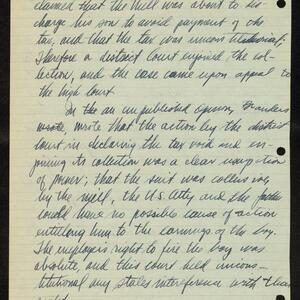 claimed that the mill was about to dis-
charge his son to avoid payment of the
tax, and that the tax was unconstitutional;
Therefore a district court enjoined the col-
lection, and the case came upon appeal to
the high court.
In the an unpublished opinion, Brandeis
wrote, wrote that the action by the district
court in declaring the tax void and en-
joining its collection was a clear usurpation
of power; that the suit was collusive,
by the mill, the U.S. Atty and the father
could have no possible cause of action
entitling him to the earnings of the boy.
The employers right to fire the boy was
absolute, and this court held uncons-
titutional any states interference with that